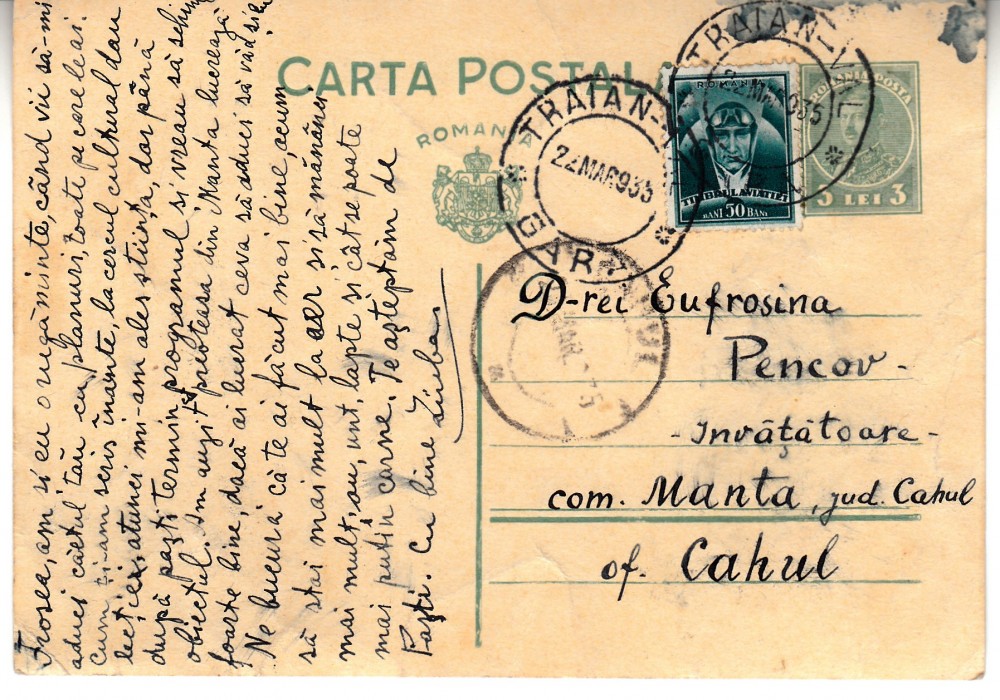 CARTA POSTALA
ROMANIA
TRAIAN-VAL
22 MAR 935
GARA
TRAIAN-VAL
22 MAR 935
ROMANIA
TIMBRUL AVIATIEI
BANI 50 BANI
ROMANIA POSTA
3 LEI 3
D-rei Eufrosina
Pencov -
- Invățătoare -
com. Manta, jud. Cahul
of. Cahul
Frosea, am și eu o rugăminte, când vii să-mi
aduci câetul tău cu planuri, toate pe care le ai.
cum ți-am scris înainte, la cercul cultural dau
lecție, atunci mi-am ales știința, dar până
după paști termin programul și vreau să schimb
obiectul. Am auzit preoteasa din Manta lucrează
foarte bine, dacă ai lucrat ceva să aduci să văd și eu
Ne bucură că te ai făcut mai bine, acum
să stai mai mult la aer și să mănânci
mai mult, ou, unt, lapte și cât se poate
mai puțin carne. Te așteptăm de
Paști. Cu bine Liuba